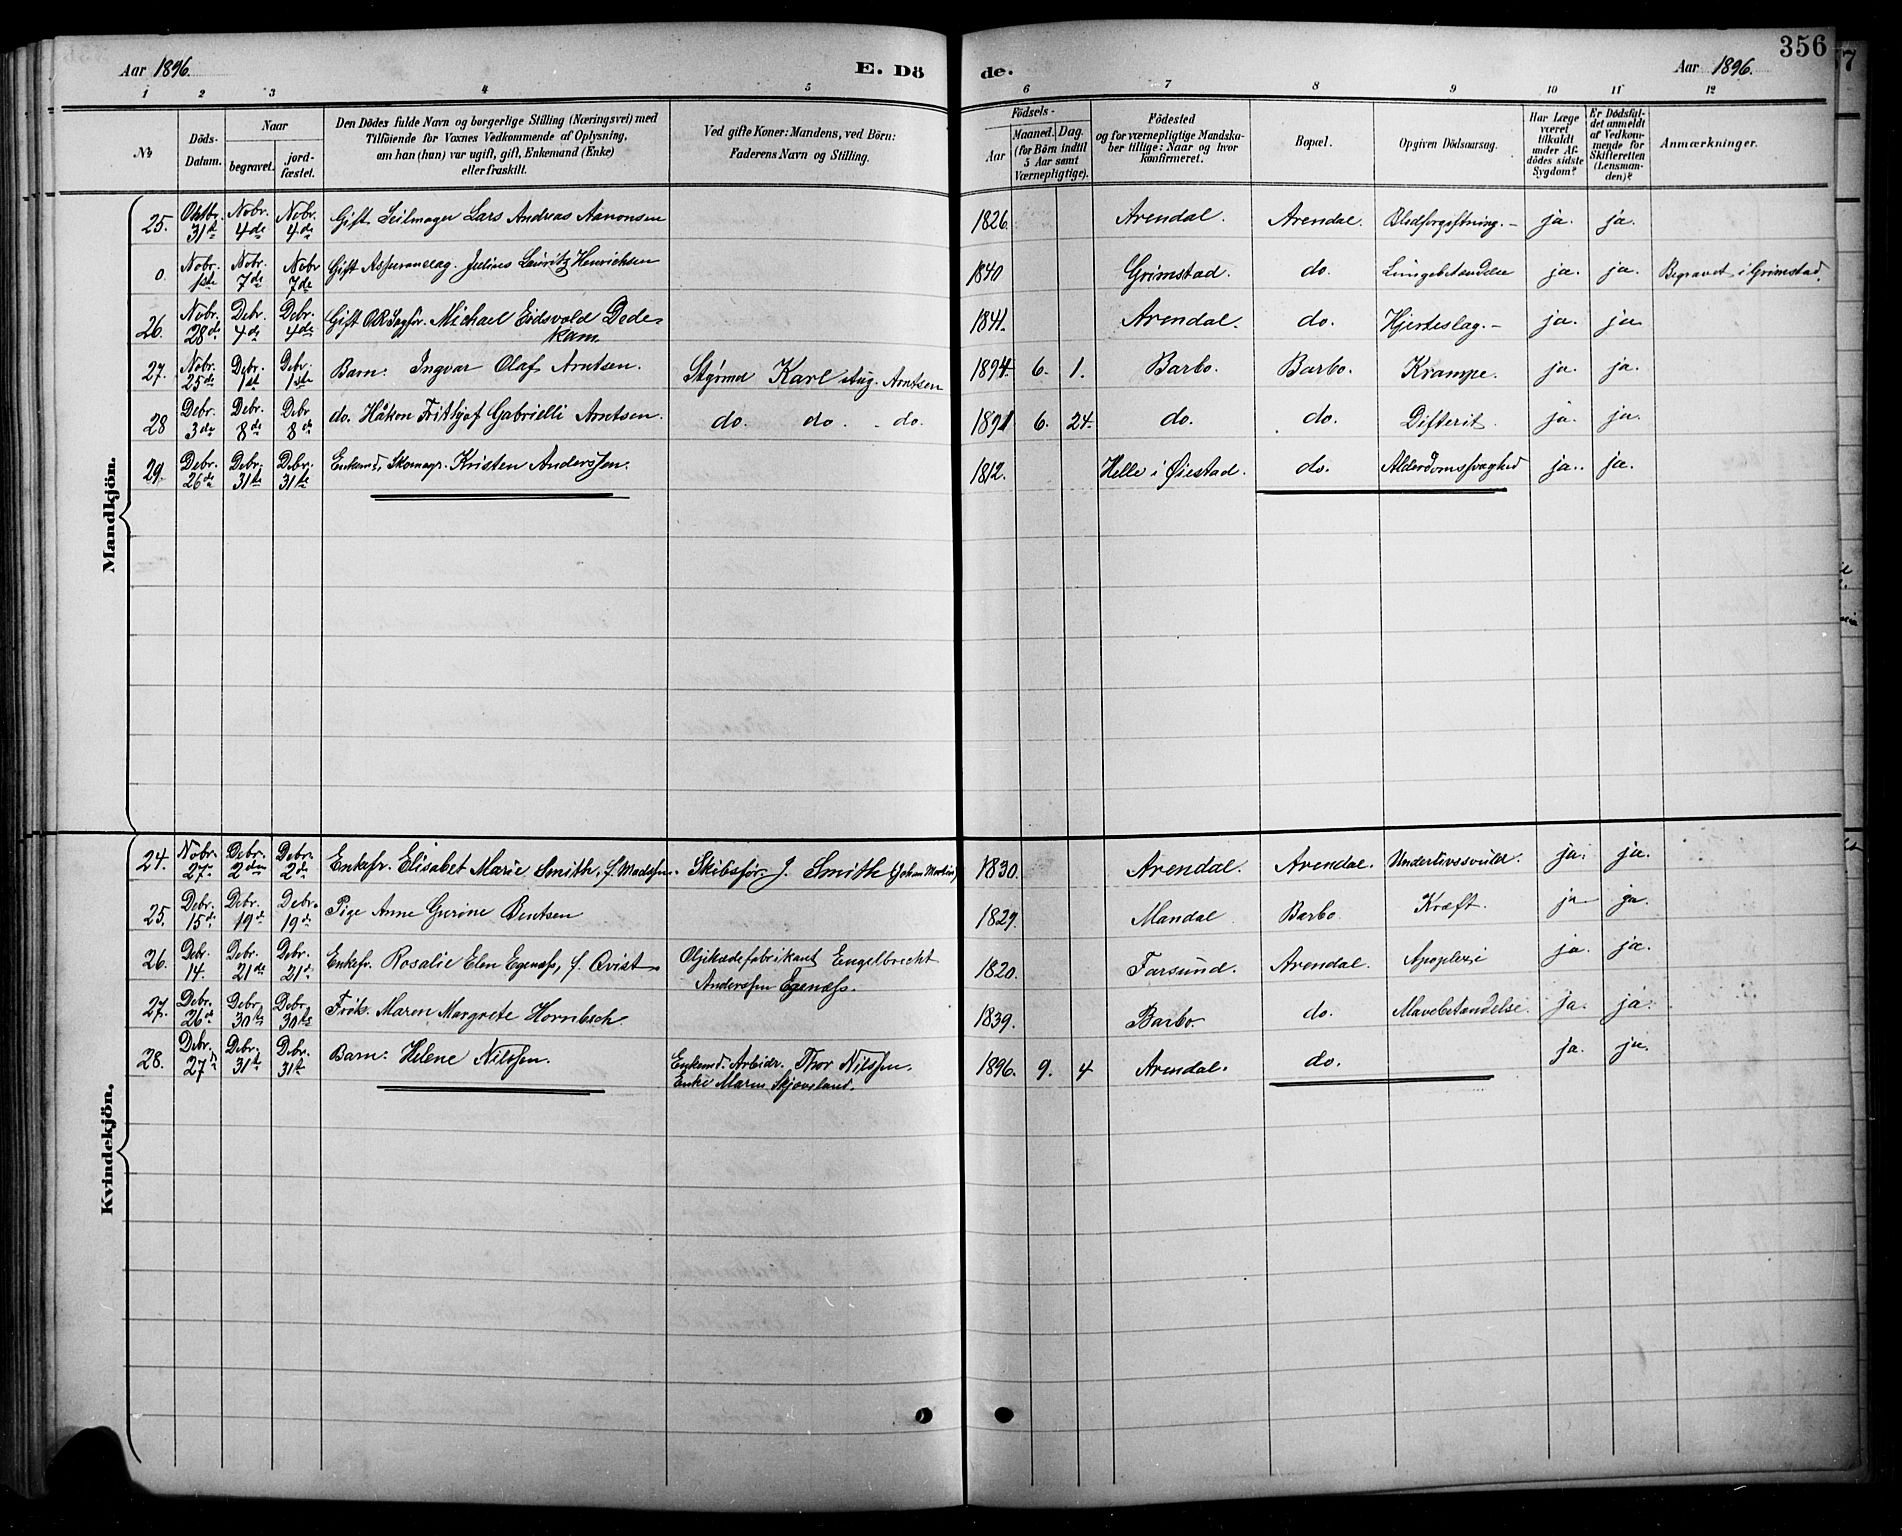 356
Aar 1896. E. Dö de. Aar 1896.
1 2 3 4 5 6 7 8 9 10 11 12
No.
Döds-Datum.
Naar
begravet.
jordfæstet.
Den Dödes fulde Navn og borgerlige Stilling (Næringsvei) med
Tilföiende for Voxnes Vedkommende af Oplysning,
om han (hun) var ugift, gift, Enkemand (Enke)
eller fraskilt.
Ved gifte Koner: Mandens, ved Börn:
Faderens Navn og Stilling.
Födsels-
Aar
Maaned. Dag.
(for Börn indtil
5 Aar samt
Værnepligtige).
Födested
og for værnepligtige Mandskaber tillige: Naar og hvor
konfirmeret.
Bopæl.
Opgiven Dödsaarsag.
Har Læge
været
tilkaldt
under Afdödes sidste
Sygdom?
Er Dödsfaldet anmeldt
af Vedkommende for
Skifteretten
(Lensmanden)?
Anmærkninger.
Mandkjön.
25. Oktbr. 31te Nobr. 4de Nobr. 4de Gift Seilmager Lars Andreas Aanonsen 1826. Arendal. Arendal. Blodforgiftning.- ja. ja.
0 Nobr. 1ste Nobr. 7de Nobr 7de Gift Julius Lauritz Henrichsen 1840 Grimstad. do. Lungebetændelse ja. ja. Begravet i Grimstad.
26. Nobr. 28de Debr. 4de Debr. 4de Gift Michael Eidsvold Dedekam 1841. Arendal. do. Hjerteslag.- ja. ja
27. Nobr. 25de Debr. 1st Debr. 1ste Barn: Ingvar Olaf Arntsen. Styrmd Karl Aug. Arntsen 1894. 6. 1. Barbo. Barbo. Krampe. ja. ja.
28 Debr. 3de Debr. 8de Debr 8de do. Håkon Frithjof Gabrielli Arntsen. do. do. do. 1891 6. 24. do. do. Difterit. ja. ja.
29. Debr. 26de Debr. 31te Debr. 31te Enkemd, Skomagr. Kristen Anderssen. 1812. Helle i Øiestad. do. Alderdomssvaghed ja. ja.
Kvindekjön.
24. Nobr. 27. Debr. 2den Debr. 2de Enkefr. Elisabet Marie Smith, f. Madssen. Skibsfør. J. Smith (Johan Martin) 1830. Arendal. Arendal. Underlivssvulst. ja. ja.
25. Debr. 15de Debr. 19de Debr. 19de Pige Anne Gurine Bentsen 1829. Mandal Barbo Kræft. ja ja.
26. Debr. 14. Debr. 21de Debr. 21de Enkefr. Rosalie Elen Egenæss, f. Qvist Oljeklædefabrikant Engelbrecht
Anderssen Egenæss. 1820. Farsund. Arendal. Apoplexi ja. ja.
27. Debr. 26de Debr. 30te Debr. 30te Frøk. Maren Margrete Hornbech. 1839. Barbo. do. Mavebetændelse. ja. ja.
28. Debr. 27de Debr. 31te Debr. 31te Barn: Helene Nilssen. Enkemd. Arbeidr. Thor Nilssen.
Enke Maren Skjovsland. 1896. 9. 4 Arendal. do. ja. ja.